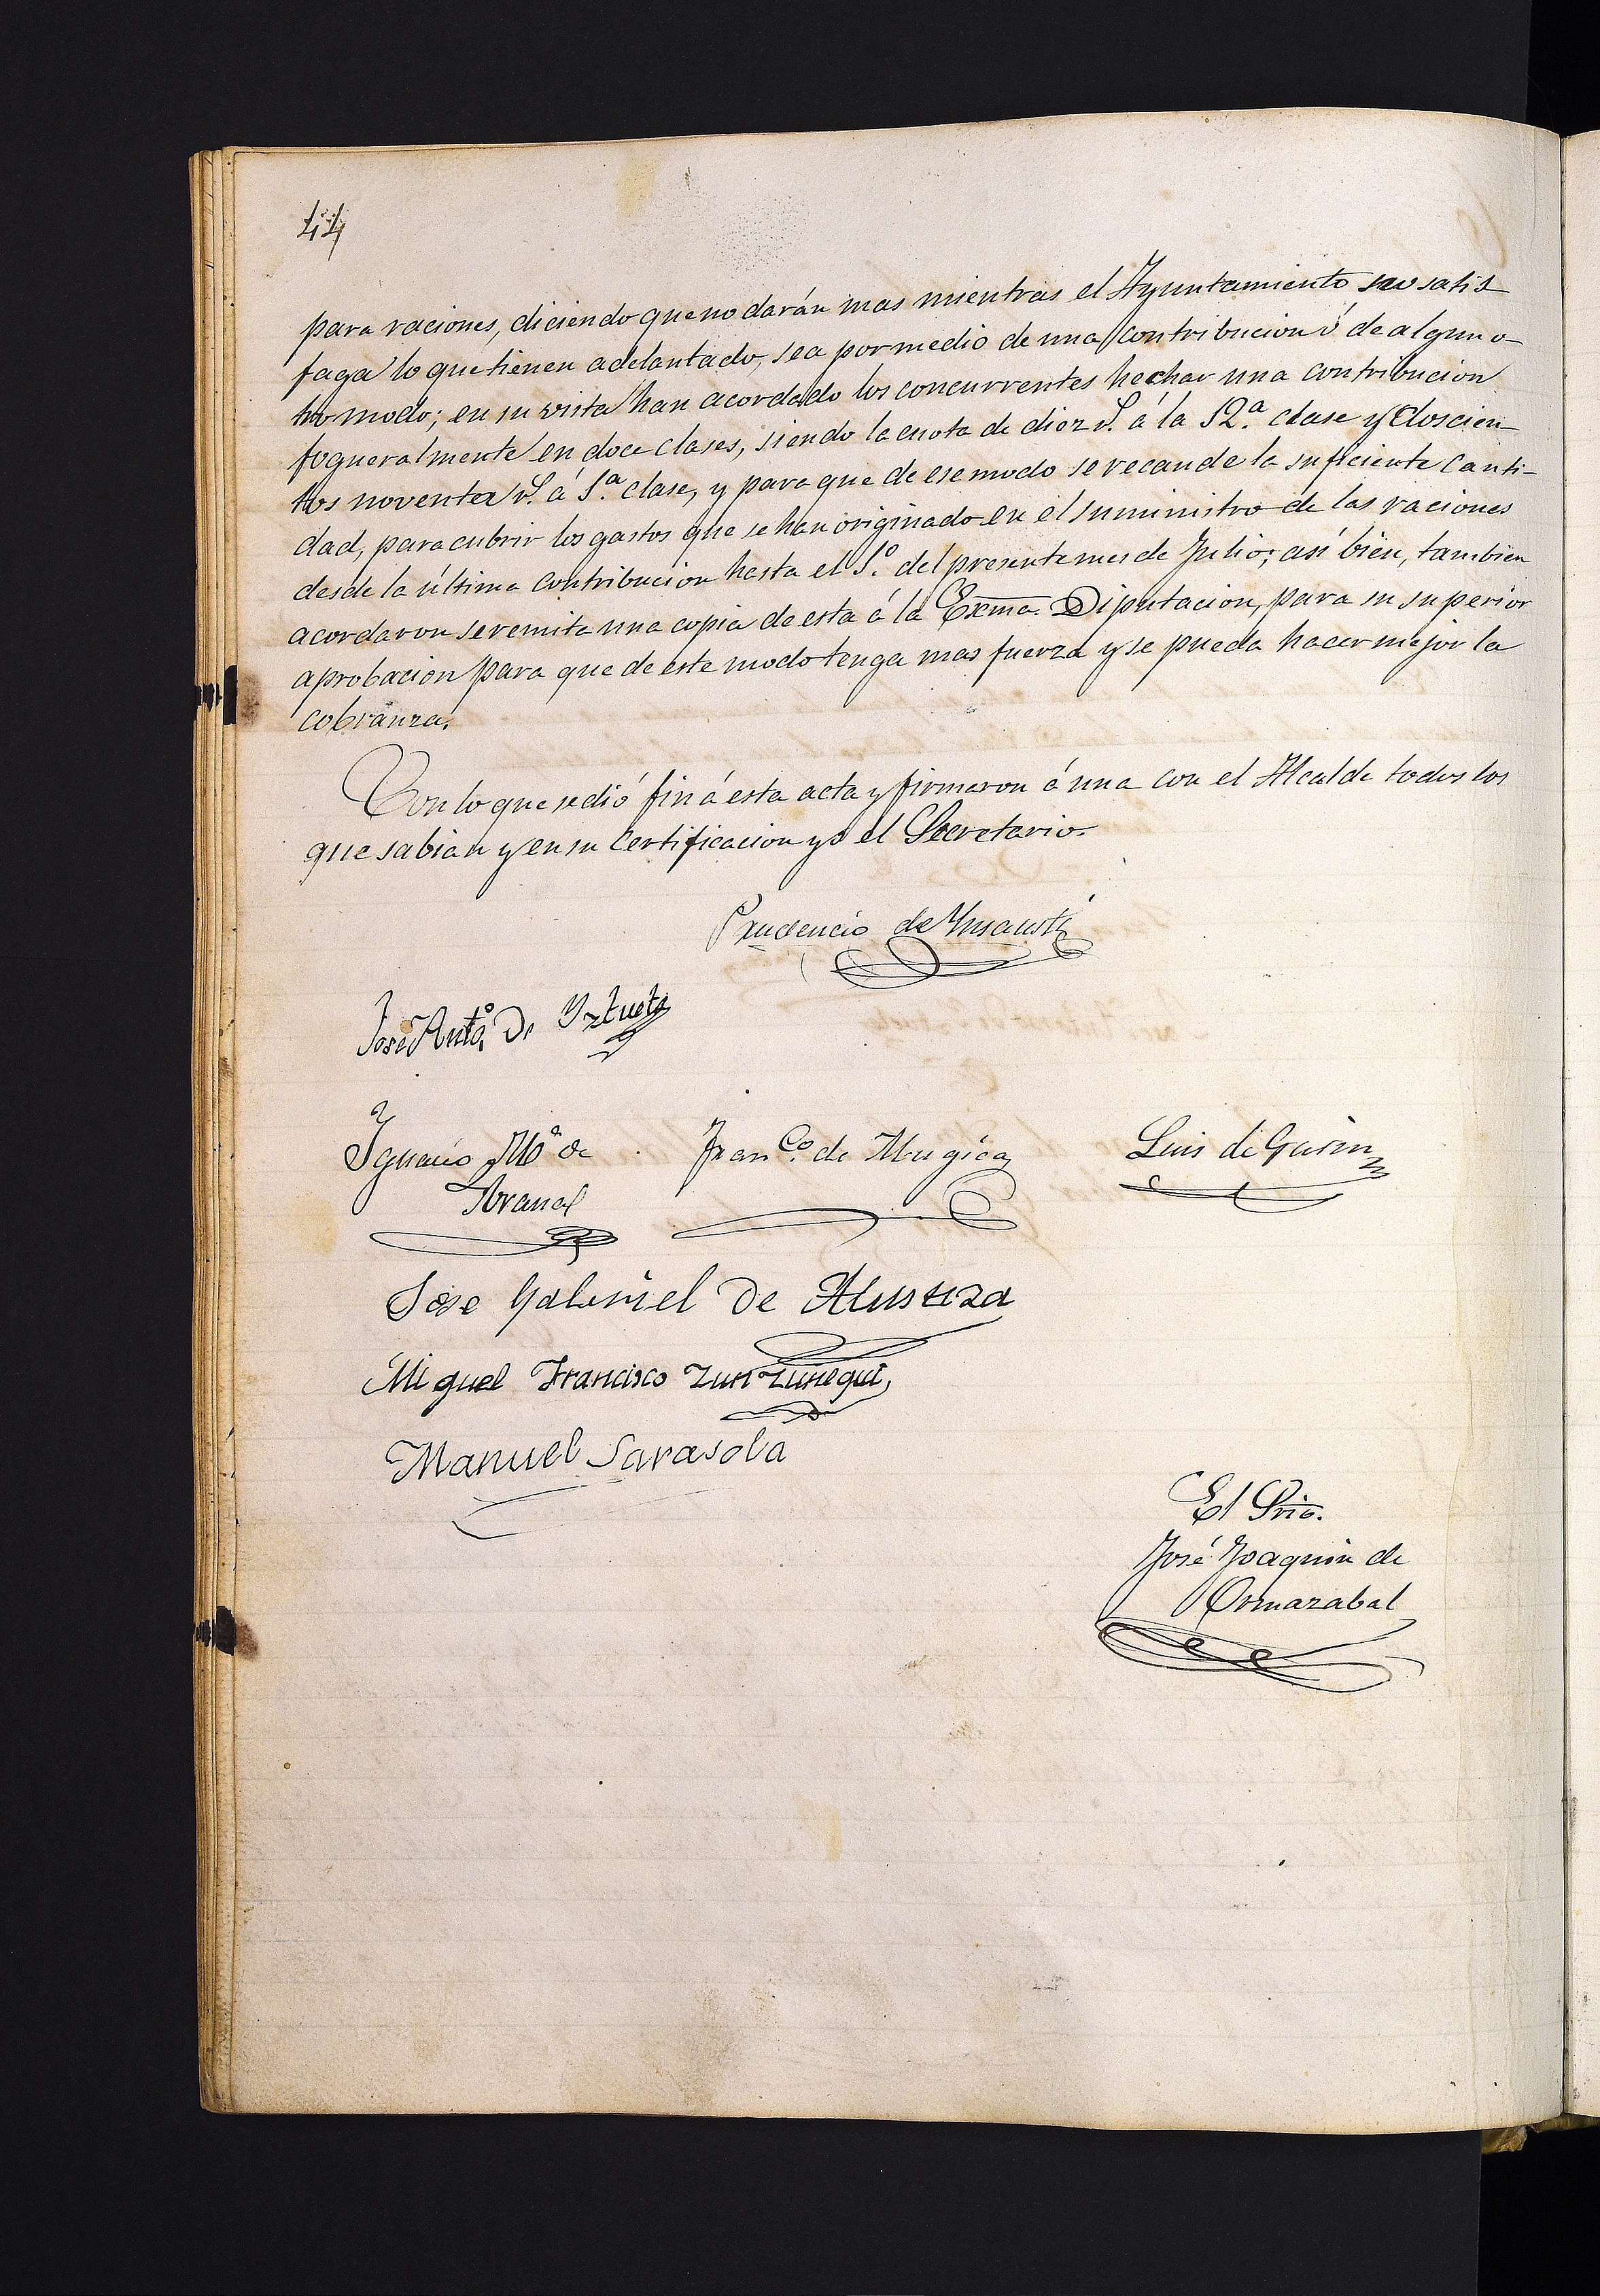 44
para raciones, diciendo que no darán mas mientras el Ayuntamiento no satis
faga lo que tienen adelantado, sea por medio de una contribucion ó de algun o-
tro modo; en su vista han acordado los concurrentes hechar una contribucion
fogueralmente en doce clases, siendo la cuota de diez rs. á la 12.ª clase y doscien-
tos noventa rs. á 1.ª clase, y para que de ese modo se recaude la suficiente canti-
dad, para cubrir los gastos que se han originado en el suministro de las raciones
desde la última contribucion hasta el 1.º del presente mes de Julio; así bien, tambien
acordaron se remita una copia de esta á la Exma. Diputacion, para su superior
aprobacion para que de este modo tenga mas fuerza y se pueda hacer mejor la
cobranza.
Con lo que se dió fin á esta acta y firmaron á una con el Alcalde todos los
que sabian y en su certificacion yo el Secretario.
Prudencio de Ynsausti
José Antº. De Yztueta
Ygnacio Mª de
Aranal
Fran.co de Mugica
Luis de
Jose Gabriel De Alustiza
Miguel Francisco Zunzunegui
Manuel Sarasola
El Srio.
José Joaquin de
Ormazabal